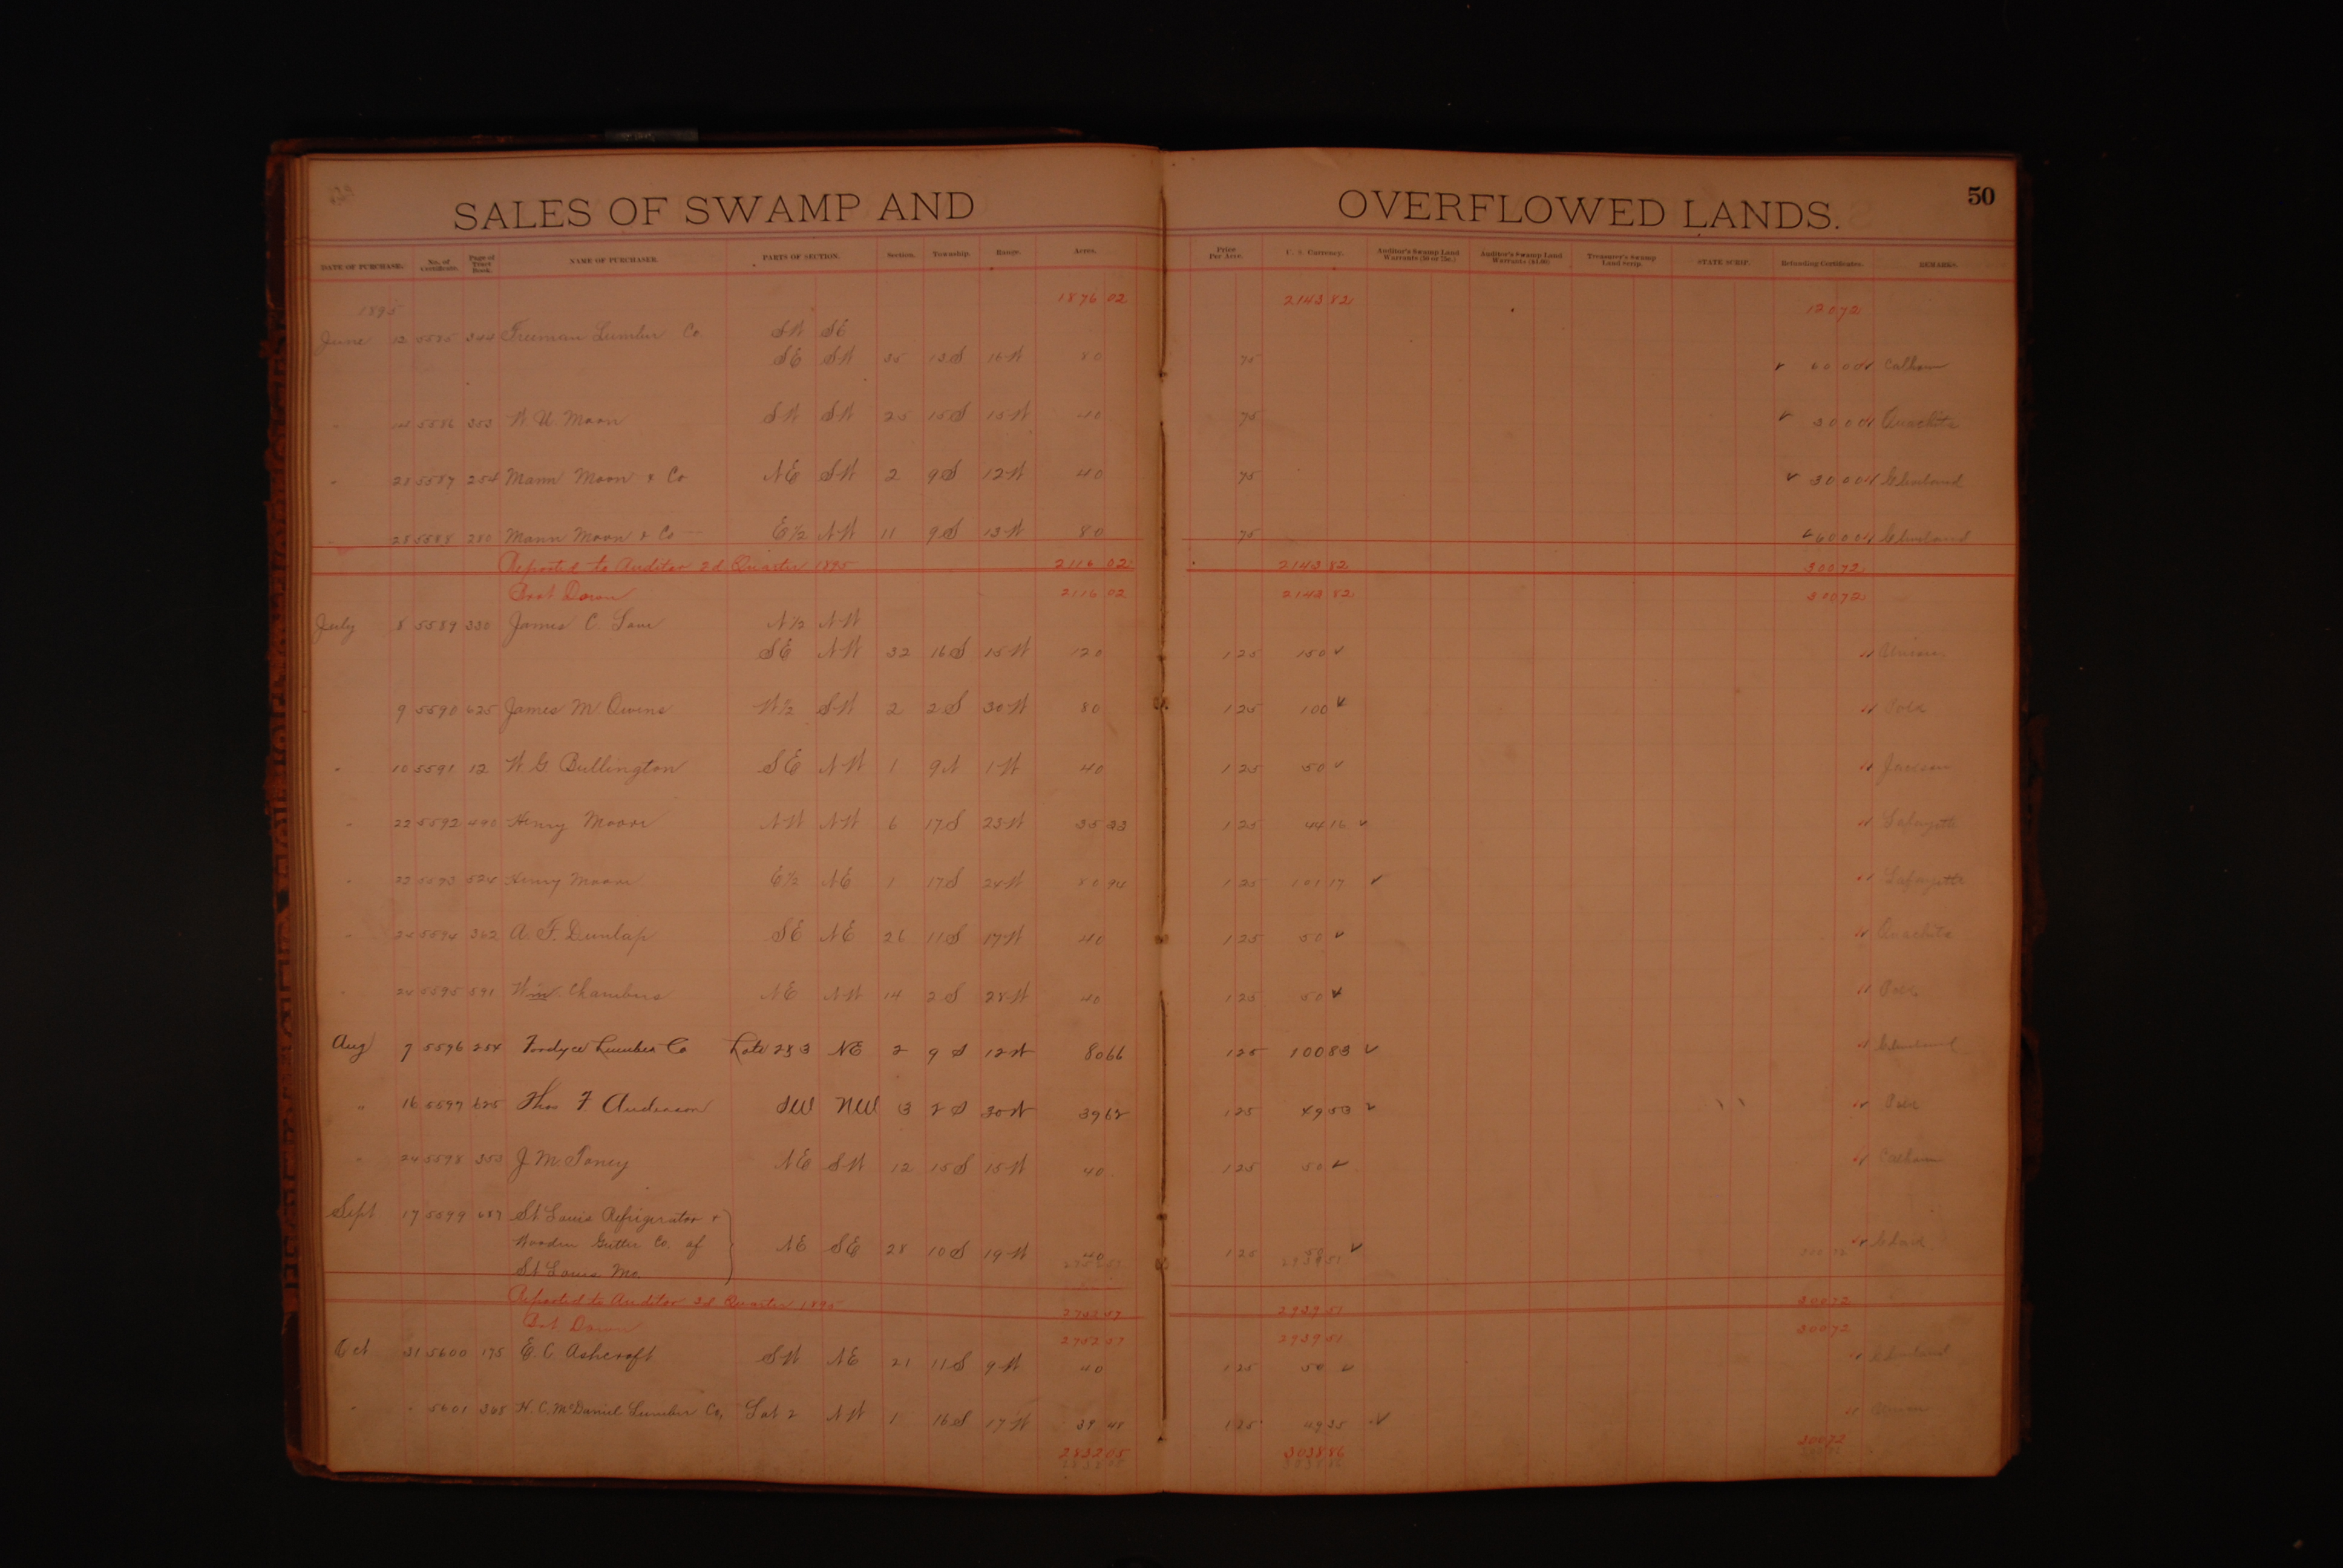 SALES OF SWAMP AND OVERFLOWED LANDS. 50
DATE OF PURCHASE. No. of Certificate. Page of Tract Book. NAME OF PURCHASER. PARTS OF SECTION. Section. Township. Range. Acres. Price Per Acre. U. S. Currency. Auditor's Swamp Land Warrants Auditor's Swamp Land Warrants Treasurer's Swamp Land Scrip. STATE SCRIP. Refunding Certificates. REMARKS.
1876 02 2143 82 120 72
1895
June 12 5585 344 Freeman Lumber Co SW SE
SE SW 35 13S 16W 80 75 60 00 Calhoun
" 5586 353 W. U. Moon SW SW 25 15S 15W 40 75 30 00 Ouachita
" 23 5587 254 Mann Moon & Co NE SW 2 9S 12W 40 75 30 00 Cleveland
" 28 5588 280 Mann Moon & Co E½ NW 11 9S 13W 80 75 60 00 Cleveland
Reported to Auditor 2d Quarter 1895 2116 02 2143 82 300 72
Brot Down 2116 02 2143 82 300 72
July 8 5589 330 James C. N½ NW
SE NW 32 16S 15W 120 1 25 150 Union
9 5590 625 James M Owens W½ SW 2 2S 30W 80 1 25 100 Polk
" 10 5591 12 W. G. Bullington SE NW 1 9N 1W 40 1 25 50 Jackson
" 22 5592 490 Henry Moore NW NW 6 17S 23W 35 33 1 25 44 16 Lafayette
" 22 5593 524 Henry Moore E½ NE 1 17S 24W 80 94 1 25 101 17 Lafayette
" 24 5594 362 A. F. Dunlap SE NE 26 11S 17W 40 1 25 50 Ouachita
" 24 5595 591 Wm. Chambers NE NW 14 2S 28W 40 1 25 50 Polk
Aug 7 5596 254 Fordyce Lumber Co Lots 2&3 NE 2 9S 12W 80 66 1 25 100 83 Cleveland
" 16 5597 625 Thos F Anderson SW NW 3 2S 30W 39 62 1 25 49 53 Polk
" 24 5598 353 J. M. Toney NE SW 12 15S 15W 40 1 25 50 Calhoun
Sept 17 5599 St. Louis Refrigerator &
Wooden Gutter Co. of NE SE 28 10S 19W 40 1 25 50 Clark
St Louis Mo.
Reported to Auditor 3d Quarter 1895 2752 57 2939 51 300 72
Brot Down 2752 57 2939 51 300 72
Oct 31 5600 175 E. C. Ashcroft SW NE 21 11S 9W 40 1 25 50 Cleveland
" " 5601 368 H. C. McDaniel Lumber Co, Lot 2 NW 1 16S 17W 39 48 1 25 49 35 Union
2832 05 3038 86 300 72